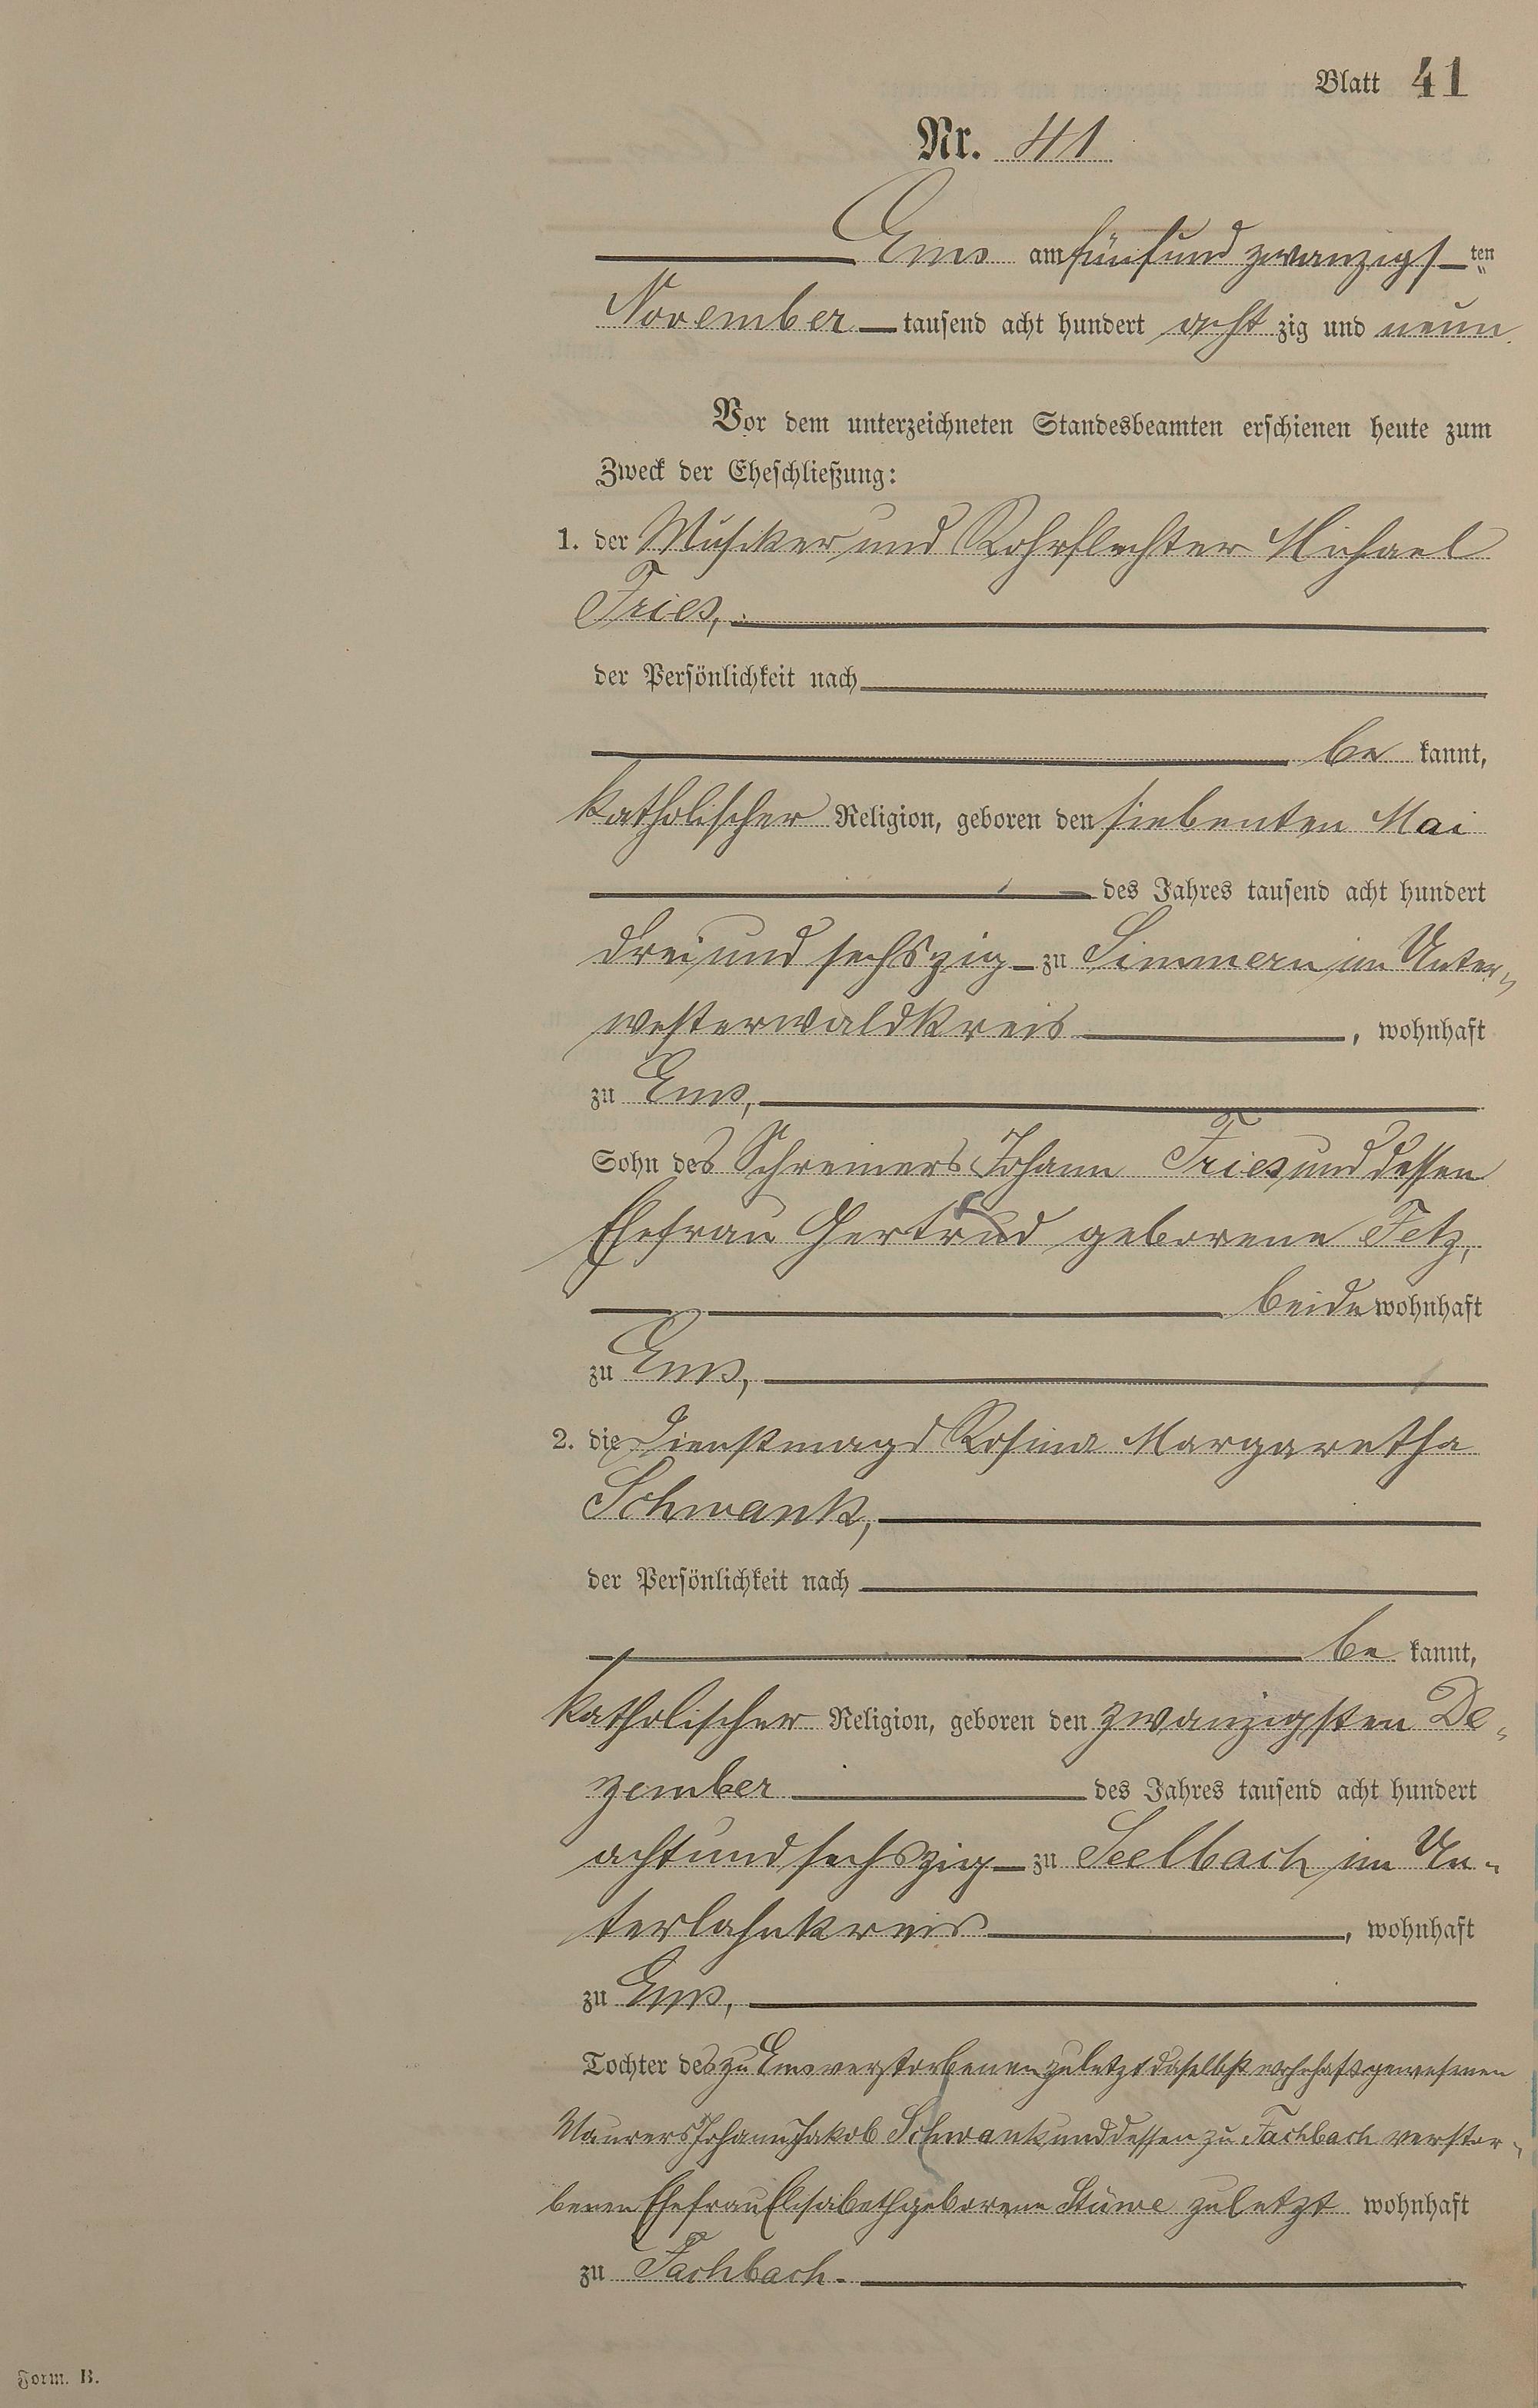 Blatt 41
Nr. 41
Ems am fünfund zwanzigs ten
November tausend acht hundert acht zig und neun.
Vor dem unterzeichneten Standesbeamten erschienen heute zum
Zweck der Eheschließung:
1. der Musiker und Rohrflechter Michael
Fries,
der Persönlichkeit nach
be kannt,
katholischer Religion, geboren den siebenten Mai
des Jahres tausend acht hundert
drei und sechszig zu Simmern im Unter„
westerwaldkreis, wohnhaft
zu Ems,
Sohn des Schreiners Johann Fries und dessen
Ehefrau Gertrud geborene Fetz,
beide wohnhaft
zu Ems,
2. die Dienstmagd Rosina Margaretha
Schwank,
der Persönlichkeit nach
be kannt,
katholischer Religion, geboren den zwanzigsten De„
zember des Jahres tausend acht hundert
achtund sechszig zu Seelbach im Un„
terlahnkreis, wohnhaft
zu Ems,
Tochter des zu Ems verstorbenen zuletzt daselbst wohnhaft gewesenen
Maurers Johann Jakob Schwank und dessen zu Fachbach verstor„
benen Ehefrau Elisabeth geborene Stüwe zuletzt wohnhaft
zu Fachbach.
Form. B.